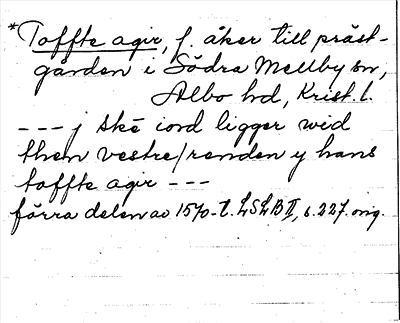 *Toffte agir, f. åker till präst-
gården i Södra Mellby sn,
Albo hd, Krist. l.
--- j skē iord ligger wid
then vestre/renden y hans
toffte agir ---
förra delen av 1570-t. LSLB II, s. 227. orig.